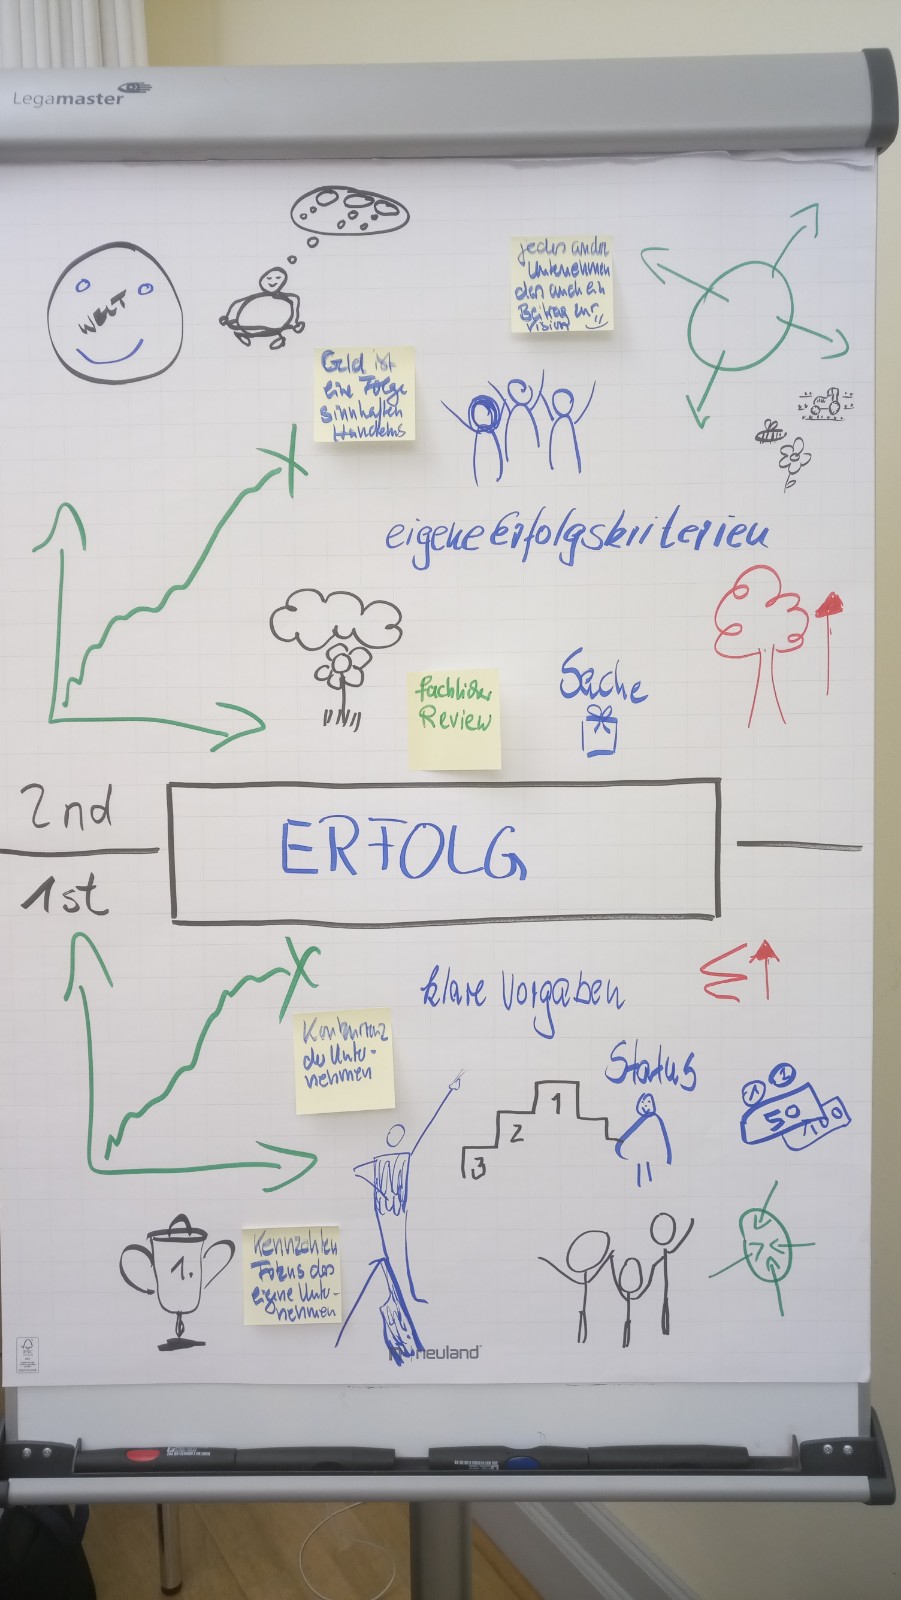 Legamaster
WELT
jedes andere
Unternehmen
das auch ein
Beitrag zur
Vision
Geld ist
eine Folge
sinnhaften
Handelns
eigene Erfolgskriterien
fachlicher
Review
Sache
2nd
ERFOLG
1st
klare Vorgaben
Konkurrenz
der Unter-
nehmen
Status
1
2
3
1
1
50
1.
Kennzahlen
Fokus das
eigene Unter-
nehmen
neuland